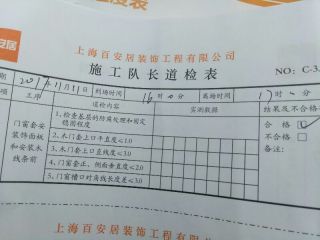 安居
上海百安居装饰工程有限公司
施工队长道检表
NO: C-3
期 2017年11月11日 到场时间 16时0分 离场时间 17时 分
工序 道检内容 实测数据 结果及不合格
门窗套安装饰面板和安装木线条前
1、检查基层的防腐处理和固定稳固程度
2、木门套上口平直度≤1.0
3、木门套上口直线度≤3.0
4、门窗套正、侧面垂直度≤2.0
5、门窗槽口对角线长度差≤3.0
合格
不合格
备注:
上海百安居装饰工程有限公司